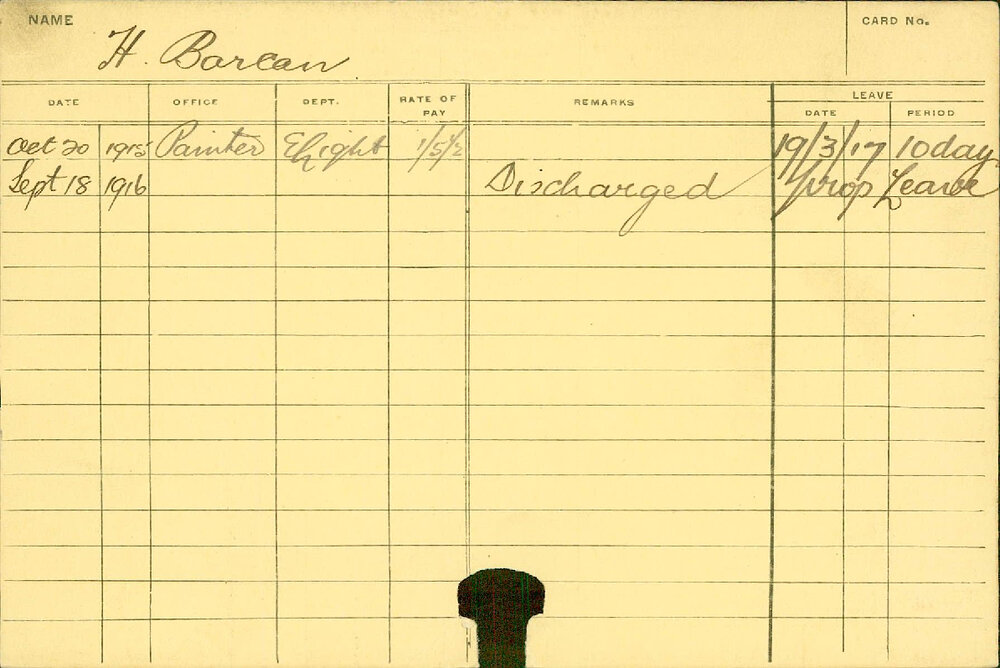 NAME
CARD No.
H. Barcan
DATE OFFICE DEPT. RATE OF PAY REMARKS LEAVE
DATE PERIOD
Oct 20 1915 Painter E Light 1/5½ 19/3/17 10 day
Sept 18 1916 Discharged prop Leave